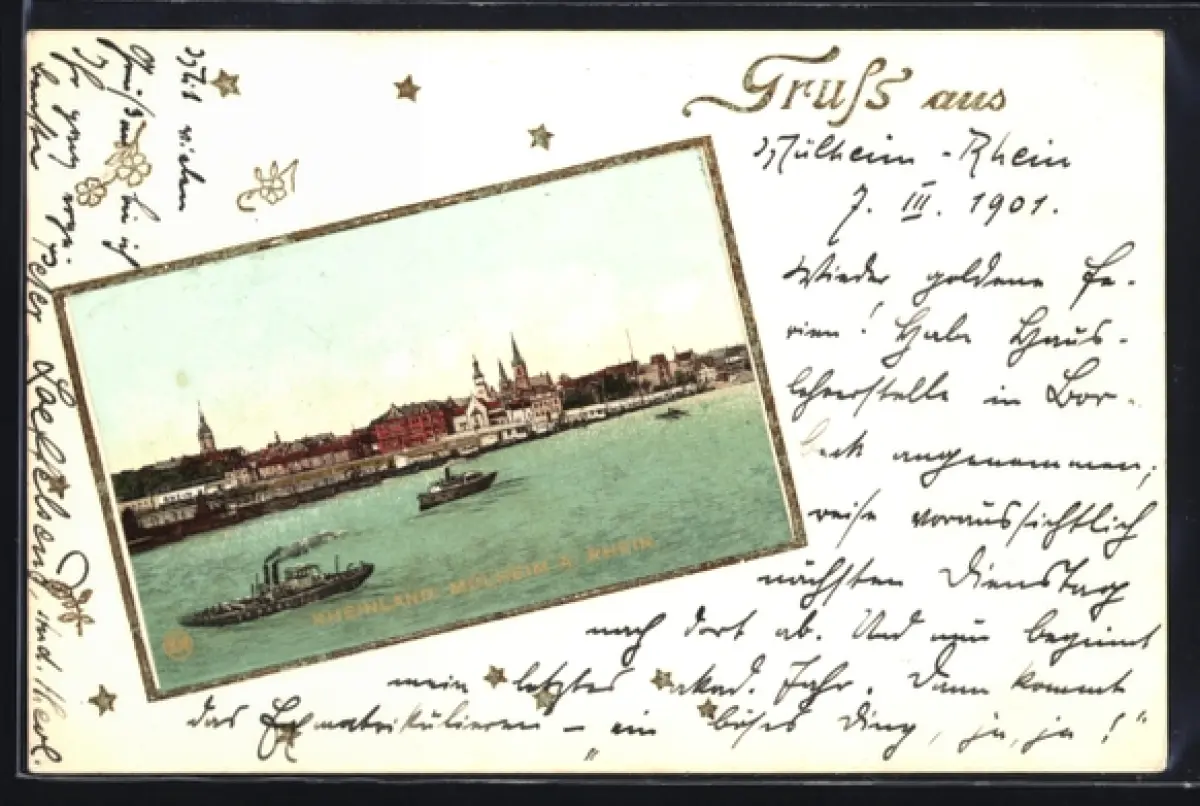 Gruß aus
Mülheim - Rhein
7. III. 1901.
Wieder goldene Fe-
rien! Habe Haus-
lehrerstelle in Bor-
beck angenommen;
reise voraussichtlich
nächsten Dienstag
nach dort ab. Und nun beginnt
mein letztes akad. Jahr. Dann kommt
das Exmatrikulieren – „ein böses Ding, ja, ja!“
Mit vielen
Grüßen bin ich
Ihr ganz erg.
Peter stud. theol.
RHEINLAND. MÜLHEIM A. RHEIN
RHEIN